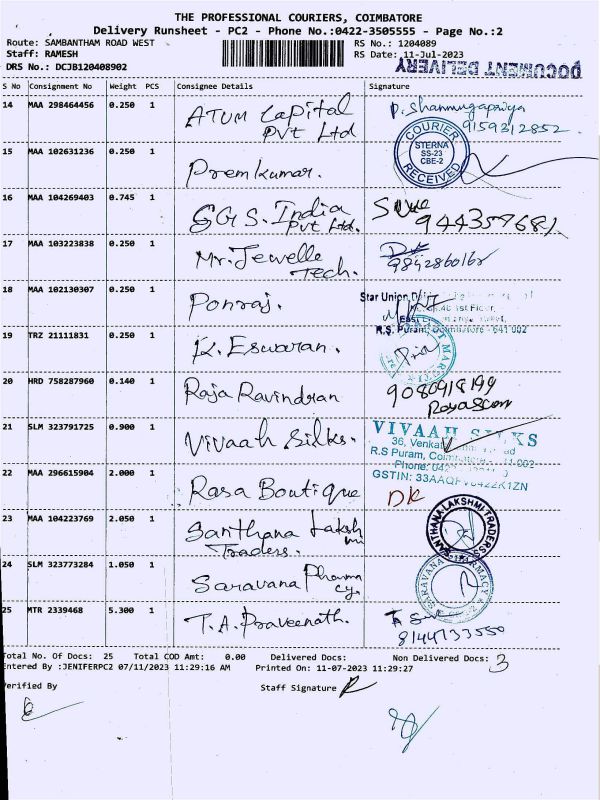 THE PROFESSIONAL COURIERS, COIMBATORE
Delivery Runsheet - PC2 - Phone No.:0422-3505555 - Page No.:2
Route: SAMBANTHAM ROAD WEST RS No.: 1204089
Staff: RAMESH RS Date: 11-Jul-2023
DRS No.: DCJB120408902 DOCUMENT DELIVERY
S No Consignment No Weight PCS Consignee Details Signature
14 MAA 298464456 0.250 1 ATUM Capital Pvt Ltd P. Shanmugapriya
9159312852
COURIER
STERNA
SS-23
CBE-2
RECEIVED
15 MAA 102631236 0.250 1 Prem kumar.
16 MAA 104269403 0.745 1 GGS. India Pvt Ltd.
17 MAA 103223838 0.250 1 Mr. Jewelle Tech.
9842860162
18 MAA 102130307 0.250 1 Ponraj. Star Union
1st Floor,
R.S. Puram, Coimbatore - 641 002
19 TRZ 21111831 0.250 1 K. Eswaran.
20 HRD 758287960 0.140 1 Raja Ravindran 9080918199
21 SLM 323791725 0.900 1 Vivaah Silks. VIVAAH SILKS
36, Venkat
R.S Puram, Coim
Phone: 042
GSTIN: 33AAQF
22 MAA 296615904 2.000 1 Rasa Boutique DK
23 MAA 104223769 2.050 1 Santhana Lakshmi Traders. SANTHANA LAKSHMI TRADERS
24 SLM 323773284 1.050 1 Saravana Pharmacy. SARAVANA PHARMACY
25 MTR 2339468 5.300 1 T.A. Praveenath.
8144133550
Total No. Of Docs: 25 Total COD Amt: 0.00 Delivered Docs: Non Delivered Docs: 3
Entered By :JENIFERPC2 07/11/2023 11:29:16 AM Printed On: 11-07-2023 11:29:27
Verified By Staff Signature